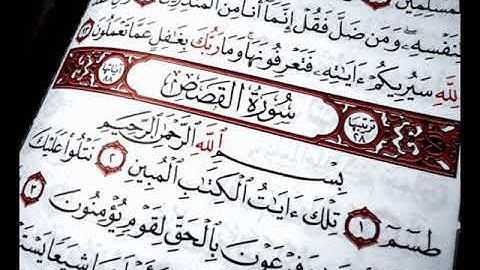 المسلمين
لنفسه ۦ ومن ضل فقل إنما أنا من المنذرين
لله سيريكم ءايته ۦ فتعرفونها وما ربك بغفل عما تعملون ٩٣
ترتيبها ٢٨ سورة القصص آياتها ٨٨
بسم الله الرحمن الرحيم
طسم ١ تلك ءايت الكتب المبين ٢ نتلوا عليك
فرعون بالحق لقوم يؤمنون ٣
شيعا